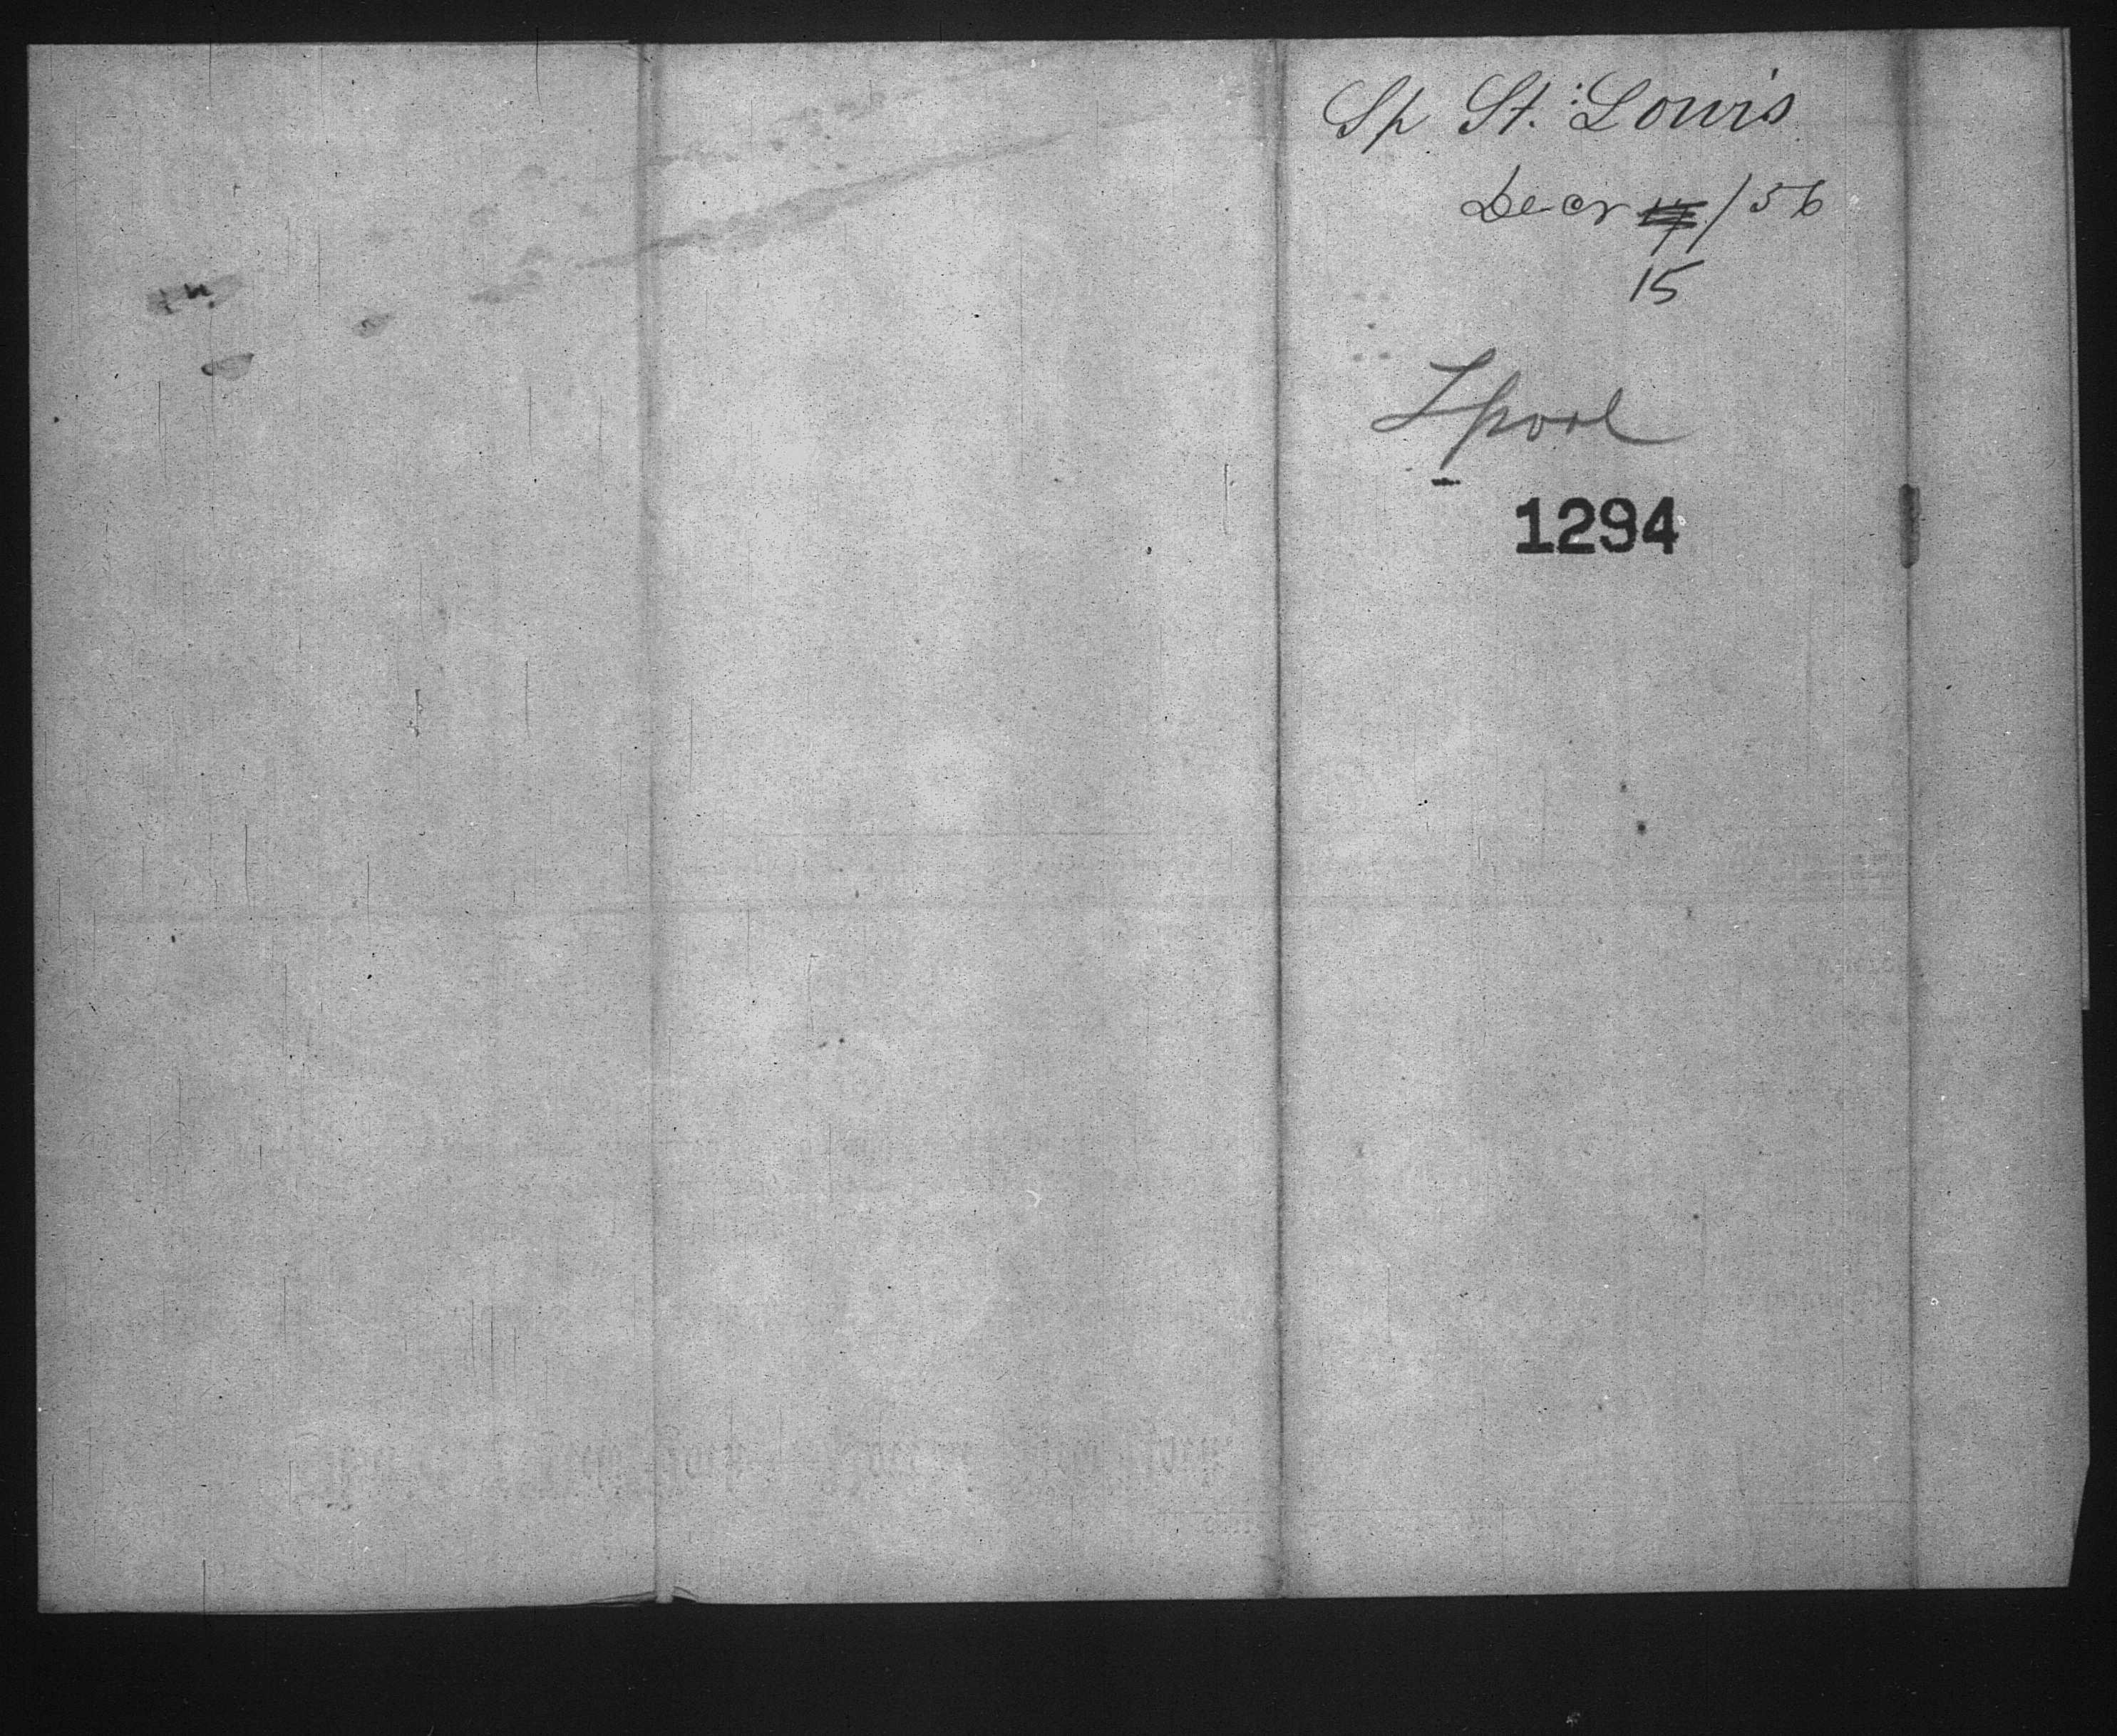 Sp St. Louis
Decr /56
15
Lpool
1294